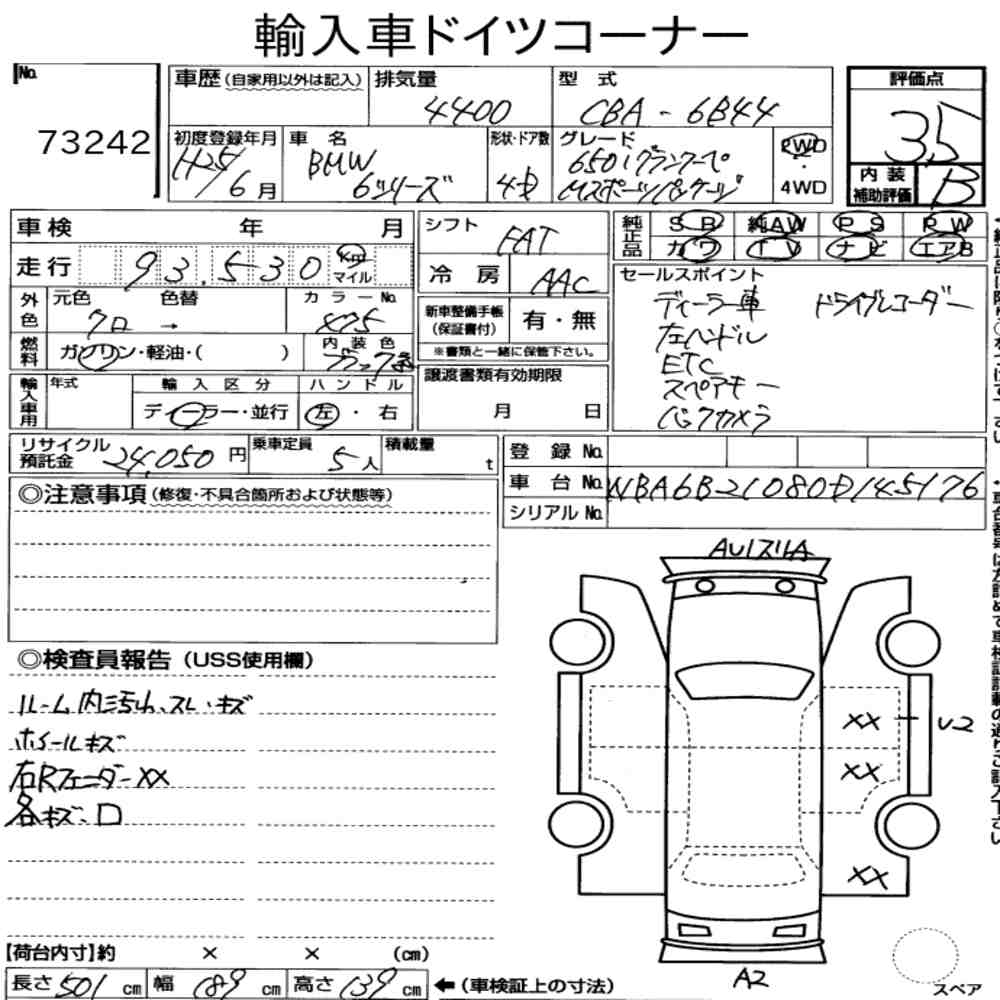 輸入車ドイツコーナー
No. 73242
車歴(自家用以外は記入) 排気量 4400 型式 CBA-6B44 評価点 3.5
初度登録年月 H25/6月 車名 BMW 6シリーズ 形状・ドア数 4D グレード 650iグランクーペ Mスポーツパッケージ 2WD・4WD 内装補助評価 B
車検 年 月 シフト FAT 純正品 SR 純AW PS PW
走行 93,530 km マイル 冷房 AAC カワ TV ナビ エアB
外色 元色 クロ 色替 → カラーNo. 475 新車整備手帳(保証書付) 有・無
※書類と一緒に保管下さい。
燃料 ガソリン・軽油・( ) 内装色
輸入車用 年式 輸入区分 ディーラー・並行 ハンドル 左・右 譲渡書類有効期限 月 日
セールスポイント
ディーラー車 ドライブレコーダー
左ハンドル
ETC
スペアキー
バックカメラ
リサイクル預託金 24,050円 乗車定員 5人 積載量 t
登録No.
車台No. WBA6B21080D145176
シリアルNo.
◎注意事項(修復・不具合箇所および状態等)
◎検査員報告(USS使用欄)
ルーム内汚れ、スレ・キズ
ホイールキズ
右Rフェンダー XX
各キズ・凹
AU1スリA
XX U2
XX
XX
A2
スペア
【荷台内寸】約 × × (cm)
長さ 501 cm 幅 189 cm 高さ 139 cm ←(車検証上の寸法)